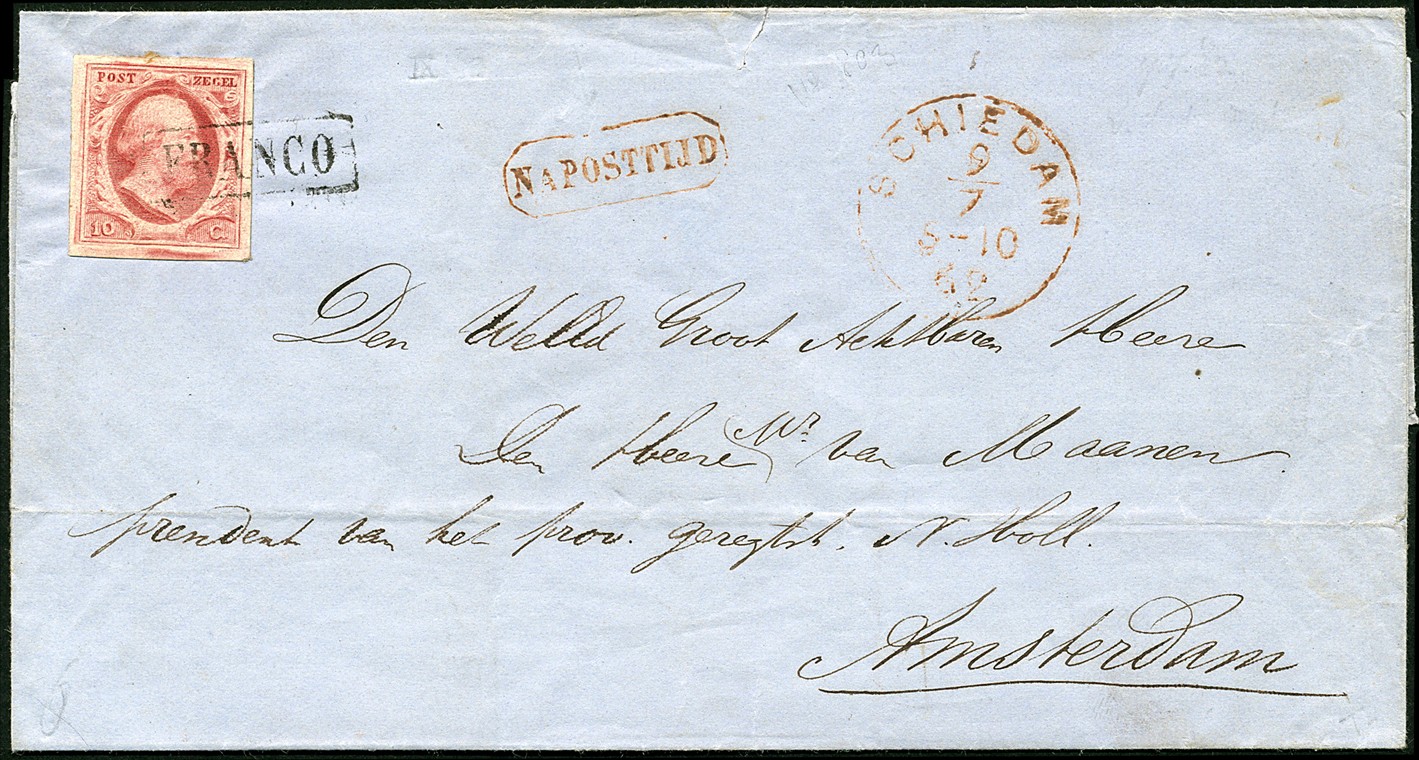 POST ZEGEL
10 C.
FRANCO
NAPOSTTIJD
SCHIEDAM
9/7
8-10
62
Den Groot Achtbaren Heere
Den Heere Mr. van Maanen
president van het prov. geregtsh. N. Holl.
Amsterdam